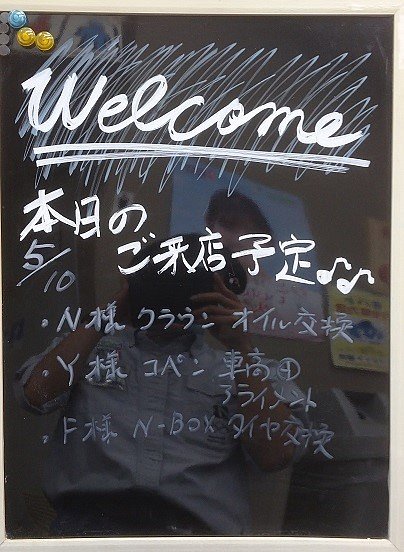 Welcome
本日の
5/10
ご来店予定♪♪
・N様 クラウン オイル交換
・Y様 コペン 車高
アライメント
・F様 N-BOX タイヤ交換